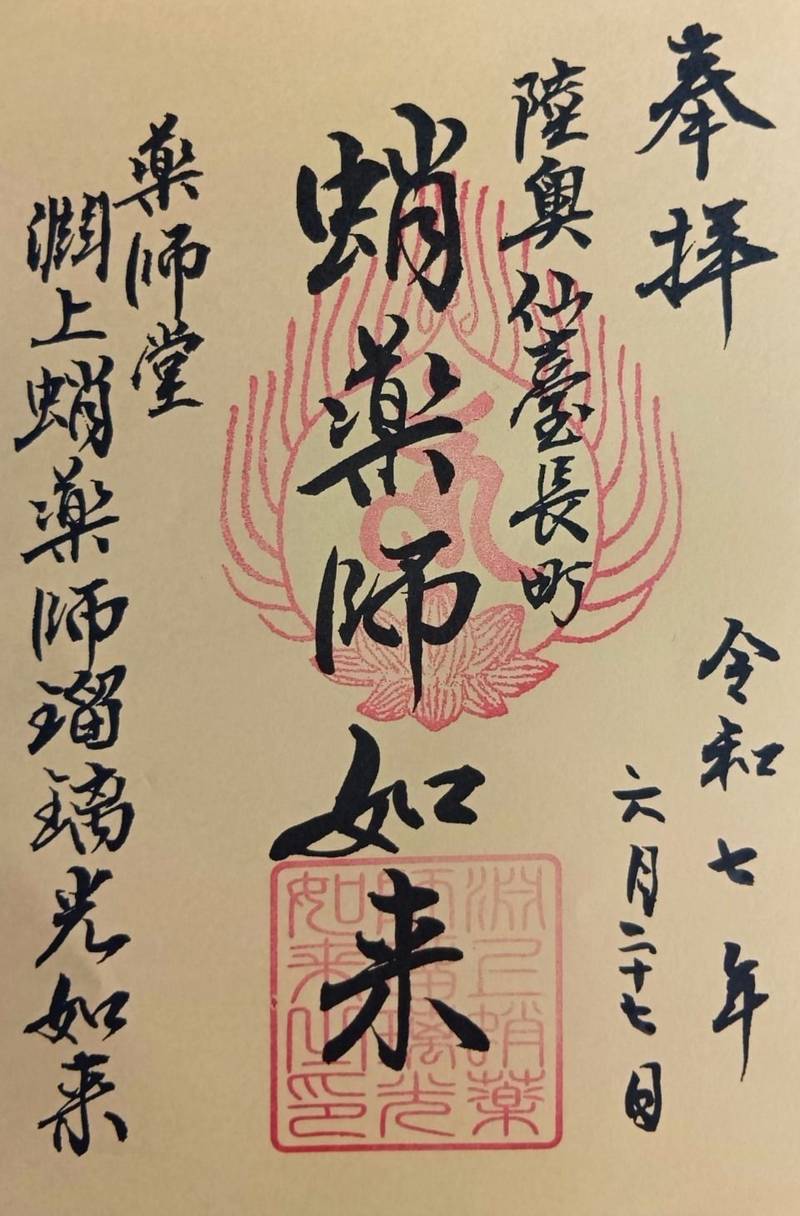 奉拝
令和七年
六月二十七日
陸奥仙臺長町
蛸薬師如来
薬師堂
淵上蛸薬師瑠璃光如来
淵上蛸薬
師瑠璃光
如来之印